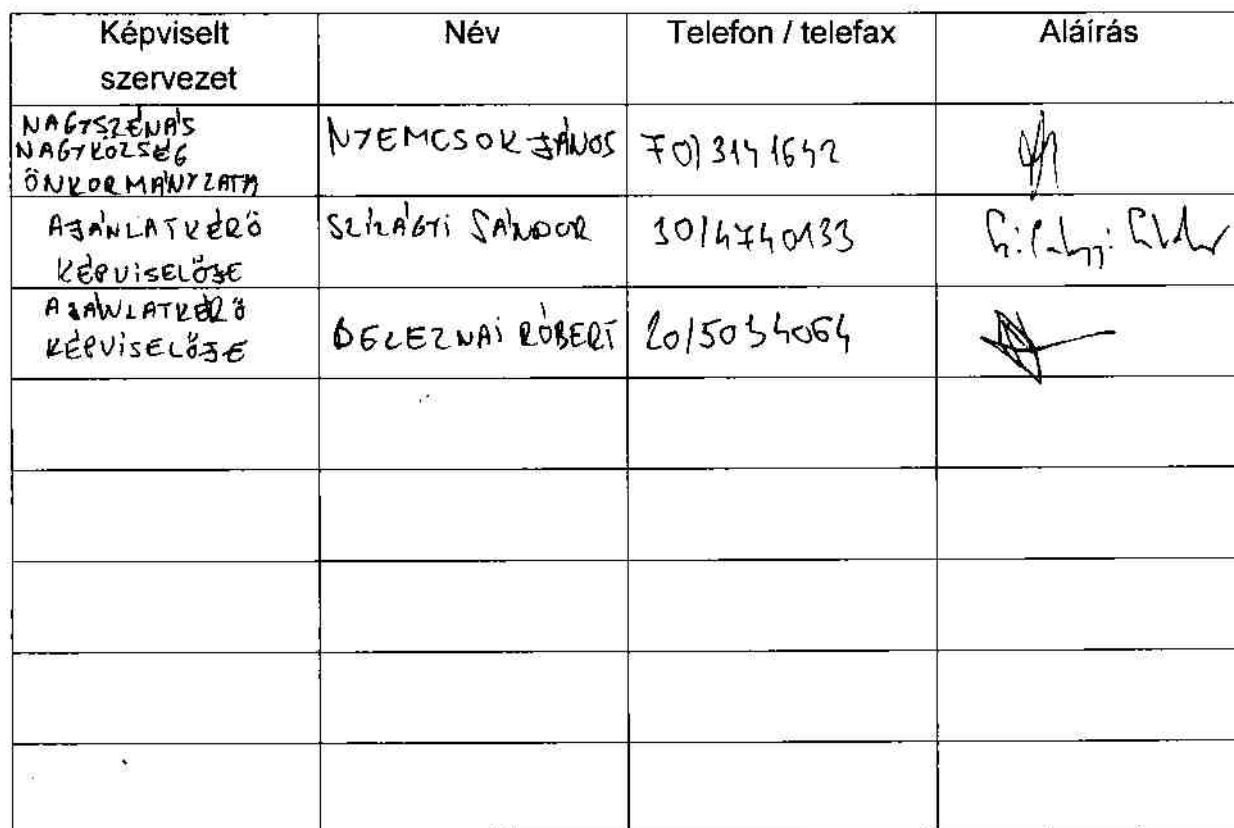 Képviselt szervezet Név Telefon / telefax Aláírás
NAGYSZÉNÁS
NAGYKÖZSÉG
ÖNKORMÁNYZATA
NYEMCSOK JÁNOS 70/3141642
AJÁNLATKÉRŐ
KÉPVISELŐJE
SZILÁGYI SÁNDOR 30/4740133 Szilágyi Sándor
AJÁNLATKÉRŐ
KÉPVISELŐJE
DELEZNAI RÓBERT 20/5034064